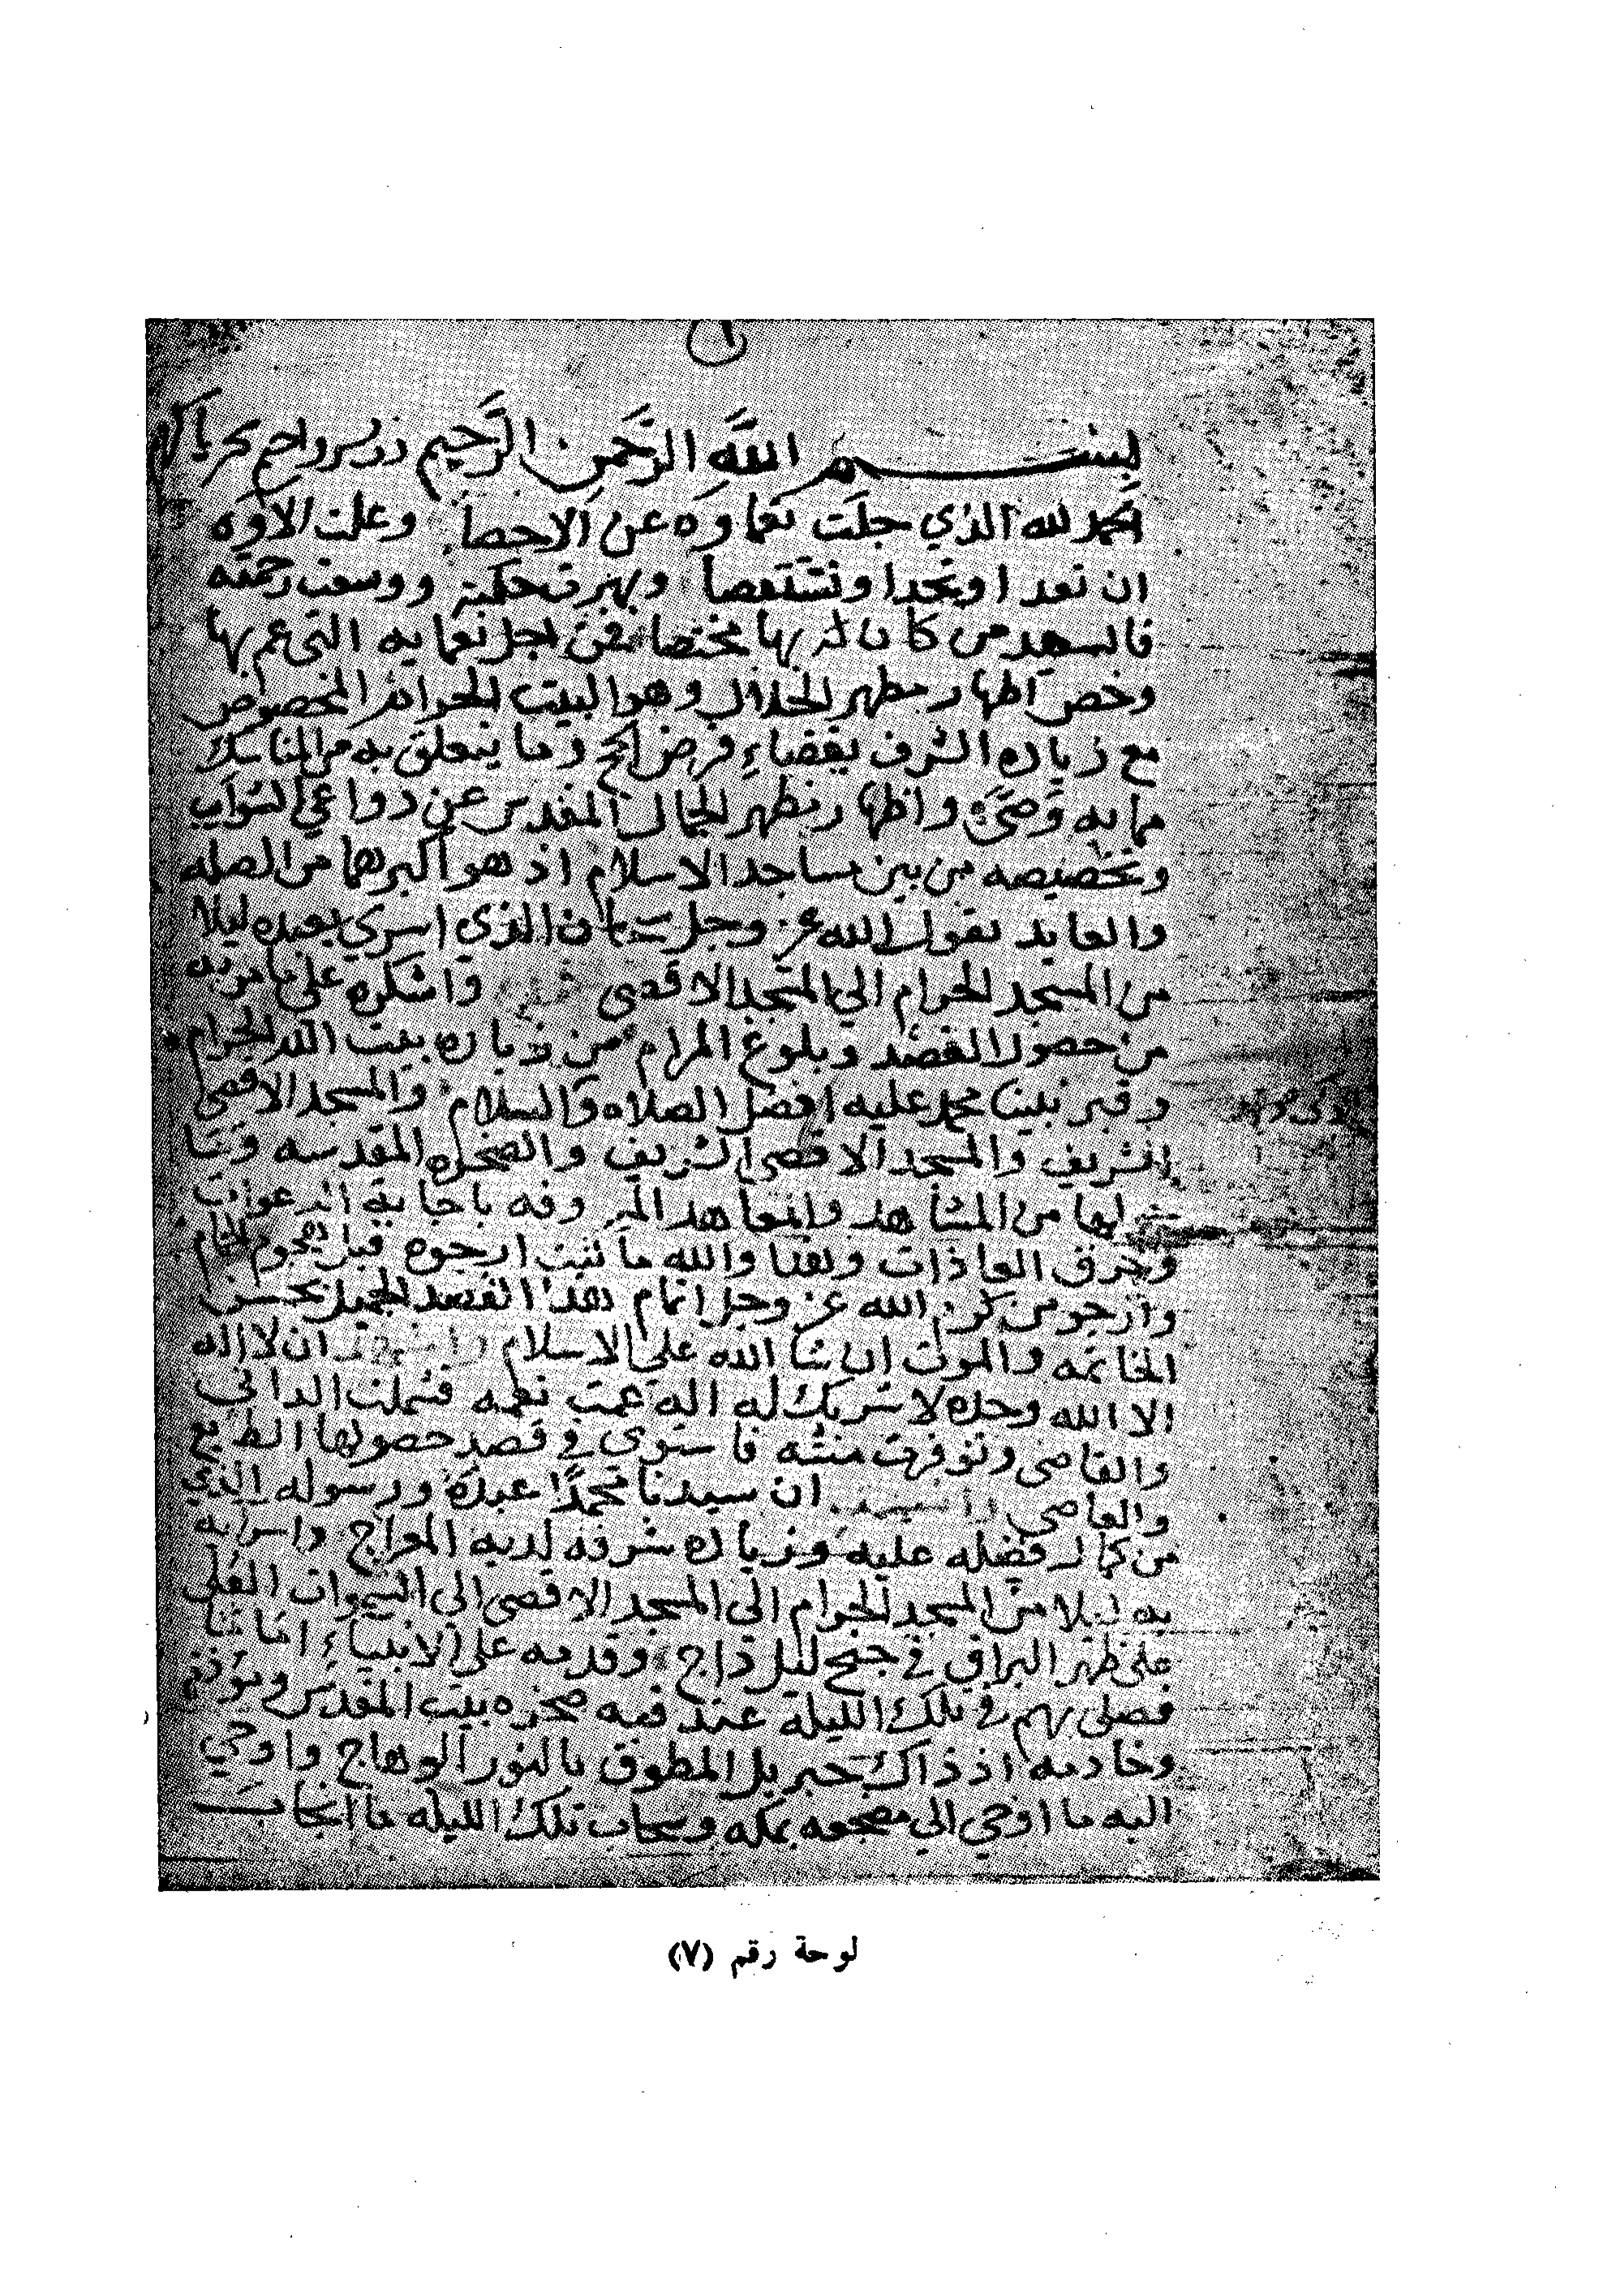 بسم الله الرحمن الرحيم
الحمد لله الذي جلت نعماوه عن الاحصا وعلت الاوه
ان تعد او تحد او تستقصا وبهرت حكمته ووسعت رحمته
فالسعيد من كان له بها مختصا فمن اجل نعمايه التي عم بها
وخص اظهار مظهر الجلال وهو البيت الحرام المخصوص
مع زياده الشرف بقضاء فرض الحج وما يتعلق به من المناسك
مما به وصى واظهار مظهر الجمال المقدس عن دواعي
وتخصيصه من بين مساجد الاسلام اذ هو اكبرها من الصله
والعايد بقول الله عز وجل سبحان الذي اسرى بعبده ليلا
من المسجد الحرام الى المسجد الاقصى واشكره على ما من به
من حصول القصد وبلوغ المرام من زياره بيت الله الحرام
وقبر نبينا محمد عليه افضل الصلاه والسلام والمسجد الاقصى
الشريف والمسجد الاقصى الشريف والصخره المقدسه
من المشاهد والمعاهد المعروفه باجابه الدعوات
وخرق العادات والله ما كنت ارجوه قبل هجوم الحمام
وارجو من كرم الله عز وجل اتمام هذا القصد الجميل بحسن
الخاتمه والموت ان شا الله على الاسلام واشهد ان لا اله
الا الله وحده لا شريك له اله عمت نعمه فشملت الداني
والقاصي وتوفرت مننه فاستوى في قصد حصولها الطايع
والعاصي واشهد ان سيدنا محمدا عبده ورسوله الذي
من كمال فضله عليه وزياده شرفه لديه المعراج
به ليلا من المسجد الحرام الى المسجد الاقصى الى السموات العلى
على ظهر البراق في جنح ليل داج وقدمه على الانبياء اماما
فصلى بهم في تلك الليلة عند قبه صخره بيت المقدس
وخادمه اذ ذاك جبريل المطوق بالنور الوهاج واوحي
اليه ما اوحي الى مضجعه بمكه وسحاب تلك الليله ما انجاب
لوحة رقم (٧)